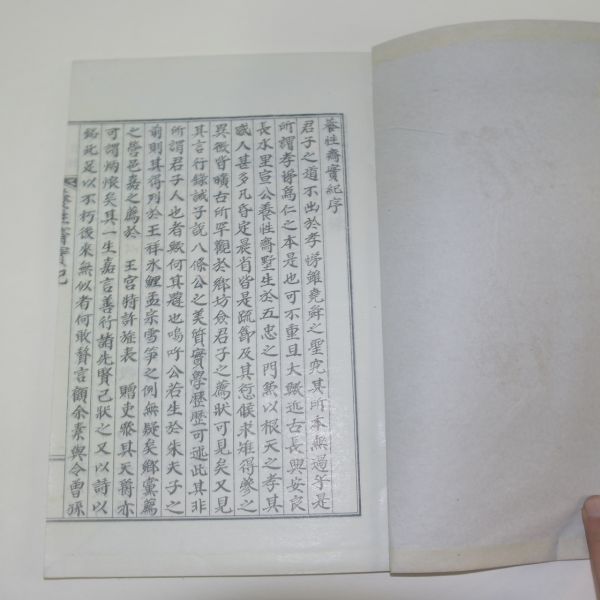 養性齋實紀序
君子之道不出於孝悌雖堯舜之聖究其所本無過乎是
所謂孝悌爲仁之本是也可不重且大歟近古長興安良
長水里宣公養性齋墅生於五忠之門兼以根天之孝其
感人甚多凡昏定晨省皆是疏節及其愆候求雉得蔘之
異徵皆曠古所罕觀於鄕坊僉君子之薦狀可見矣又見
其言行錄誡子說八條公之美質實學歷歷可述此其非
所謂君子人也者歟何其韙也嗚呼公若生於朱夫子之
前則其得列於王祥氷鯉孟宗雪筍之例無疑矣鄕黨薦
之營邑嘉之薦於 王宮特許旌表 贈吏參其天爵亦
可謂炳烺矣其一生嘉言善行諸先賢已狀之又以詩以
銘此足以不朽後來無似者何敢贅言顧余素與令曾孫
養性齋實紀